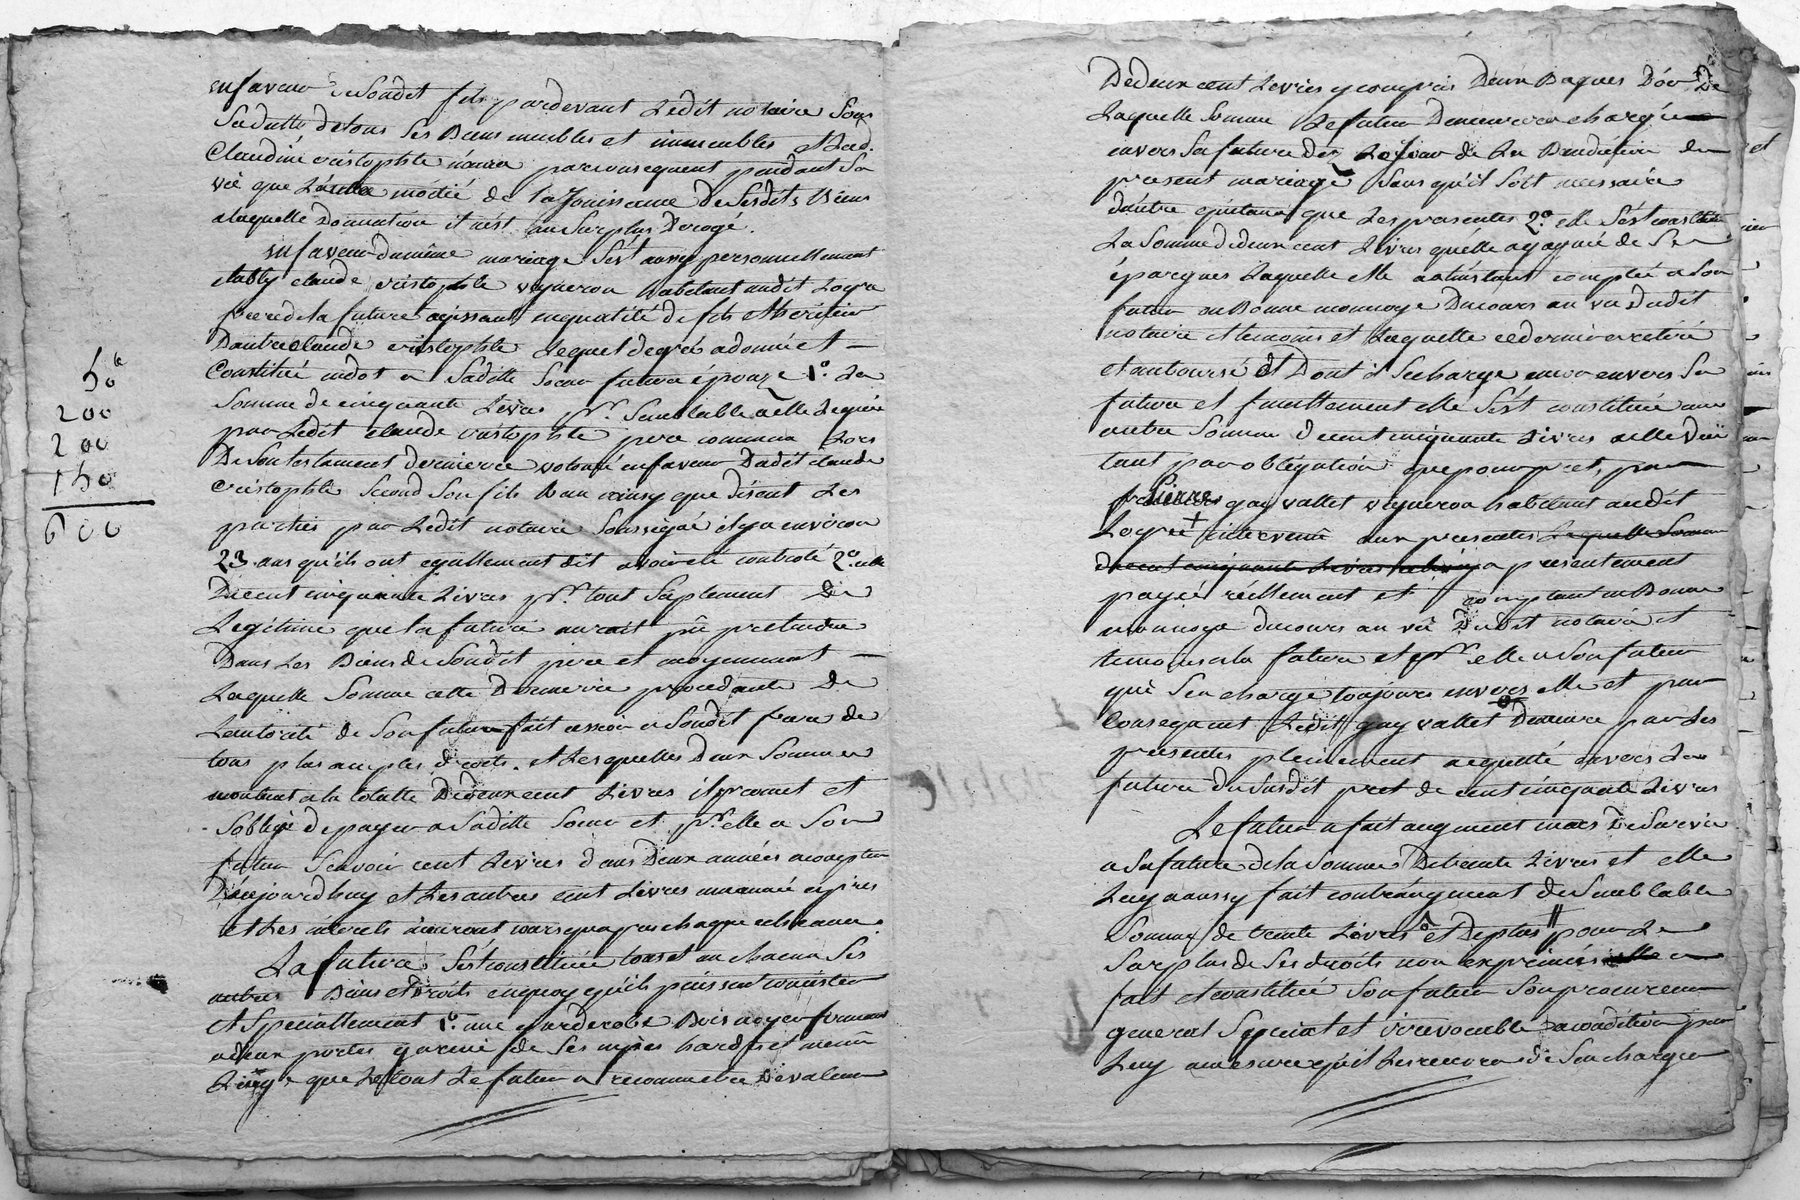 50#
200
200
150
600
enfaveur de Soudit fils pardevant Ledit notaire Sous
Sa datte de tous Ses Biens meubles et immeubles et Lad.
Claudine cristophle naura par consequent pendant Sa
vie que La moitié de la Jouissance De Sesdits Biens
alaquelle Donnation il n'est au Surplus Derogé.
en faveur du même mariage S'est aussy personnellement
etably claude cristophle vigneron habitant audit Logra
frere de la future agissant en qualité de fils et heritier
D'autre claude cristophle Lequel de gré a donné et
Constitué en dot a Saditte Soeur future épouze 1.º La
Somme de cinquante Livres pr. Semblable a elle Leguée
par Ledit claude cristophle pere commun Lors
De Son testament derniere volonté en faveur Dudit claude
cristophle Second Son fils reçu ainsy que disent Les
parties par Ledit notaire Soussigné il y a environ
23 ans qu'ils ont egallement dit avoir été controlé 2.º celle
De cent cinquante Livres pr. tout Suplement De
Legitime que la future auroit pû pretendre
Dans Les Biens de Soudit pere et moyennant
Laquelle Somme cette Derniere procedante De
Lautorité de Son futur fait cession a Soudit frere de
tous plus amples droits. et Lesquelles deux Sommes
montent a la totalle De deux cent Livres il promet et
S'oblige de payer a Saditte Soeur et pr. elle a Son
futur Scavoir cent Livres dans Deux années a compter
D'aujourd'huy et Les autres cent Livres une année après
et Les interets n'auront cours qu'apres chaque echeance.
La future S'est constituée tous et un chacun Ses
autres Biens et Droits en quoy qu'ils puissent consister
et Speciallement 1.º une garderobe Bois noyer fermant
a deux portes garnie de Ses nipes hardes et menu
Linge que Le tout Le futur a reconnu être De valeur
De deux cent Livres y compris Deux Bagues D'or De
Laquelle Somme Le futur Demeurera chargé
envers Sa future Dez Le jour de La Benediction du
present mariage Sans qu'il Soit necessaire
d'autre quittance que Les presentes 2.º elle S'est constitué
La Somme de deux cent Livres qu'elle a gagnée de Ses
épargnes Laquelle elle a a l'instant comptée a Son
futur en Bonne monnoye Du cours au vu Dudit
notaire et temoins et Laquelle ce dernier a retiré
et emboursé et Dont il Se charge encor envers Sa
future et finallement elle S'est constituée une
autre Somme de cent cinquante Livres a elle Due
tant par obligation que pour pret, par
Pierre gay vallet vigneron habitant audit
Logra + intervenu aux presentes Laquelle Somme
de cent cinquante Livres a presentement
payé réellement et comptant en Bonne
monnoye du cours au vu Dudit notaire et
temoins a la future et pr. elle a Son futur
qui S'en charge toujours envers elle et par
Consequent Ledit gay vallet Demeure par Les
presentes pleinement acquitté envers La
future du Susdit pret de cent cinquante Livres
Le futur a fait augment mais De Survie
a Sa future de la Somme De trente Livres et elle
Luy a aussy fait contre augment de Semblable
Somme de trente Livres et De plus pour Le
Surplus de Ses droits non exprimés elle a
fait et constitué Son futur Son procureur
general Special et irrevocable a condition par
Luy a mesure qu'il Les recevra de S'en charger